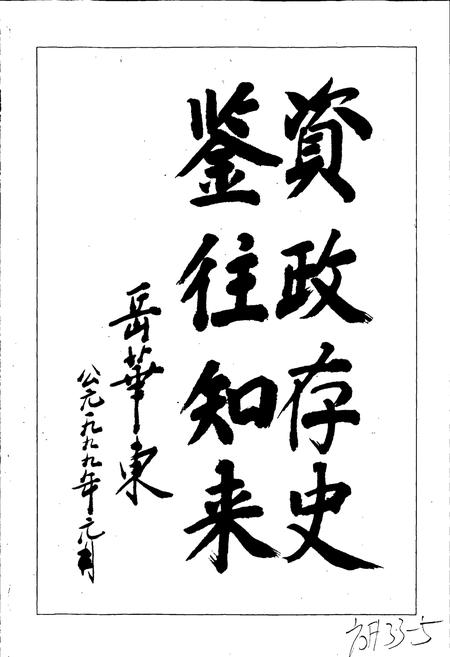 資政存史
鉴往知来
岳華東
公元一九九九年元月
33-5